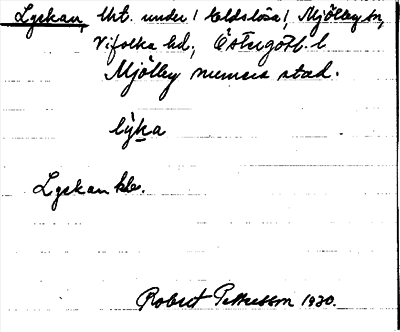 Lyckan, Utj. under 1 Eldslösa 1, Mjölby sn,
Vifolka hd, Östergötl. l
Mjölby numera stad.
lỳka
Lyckan kb.
Robert Pettersson 1930.